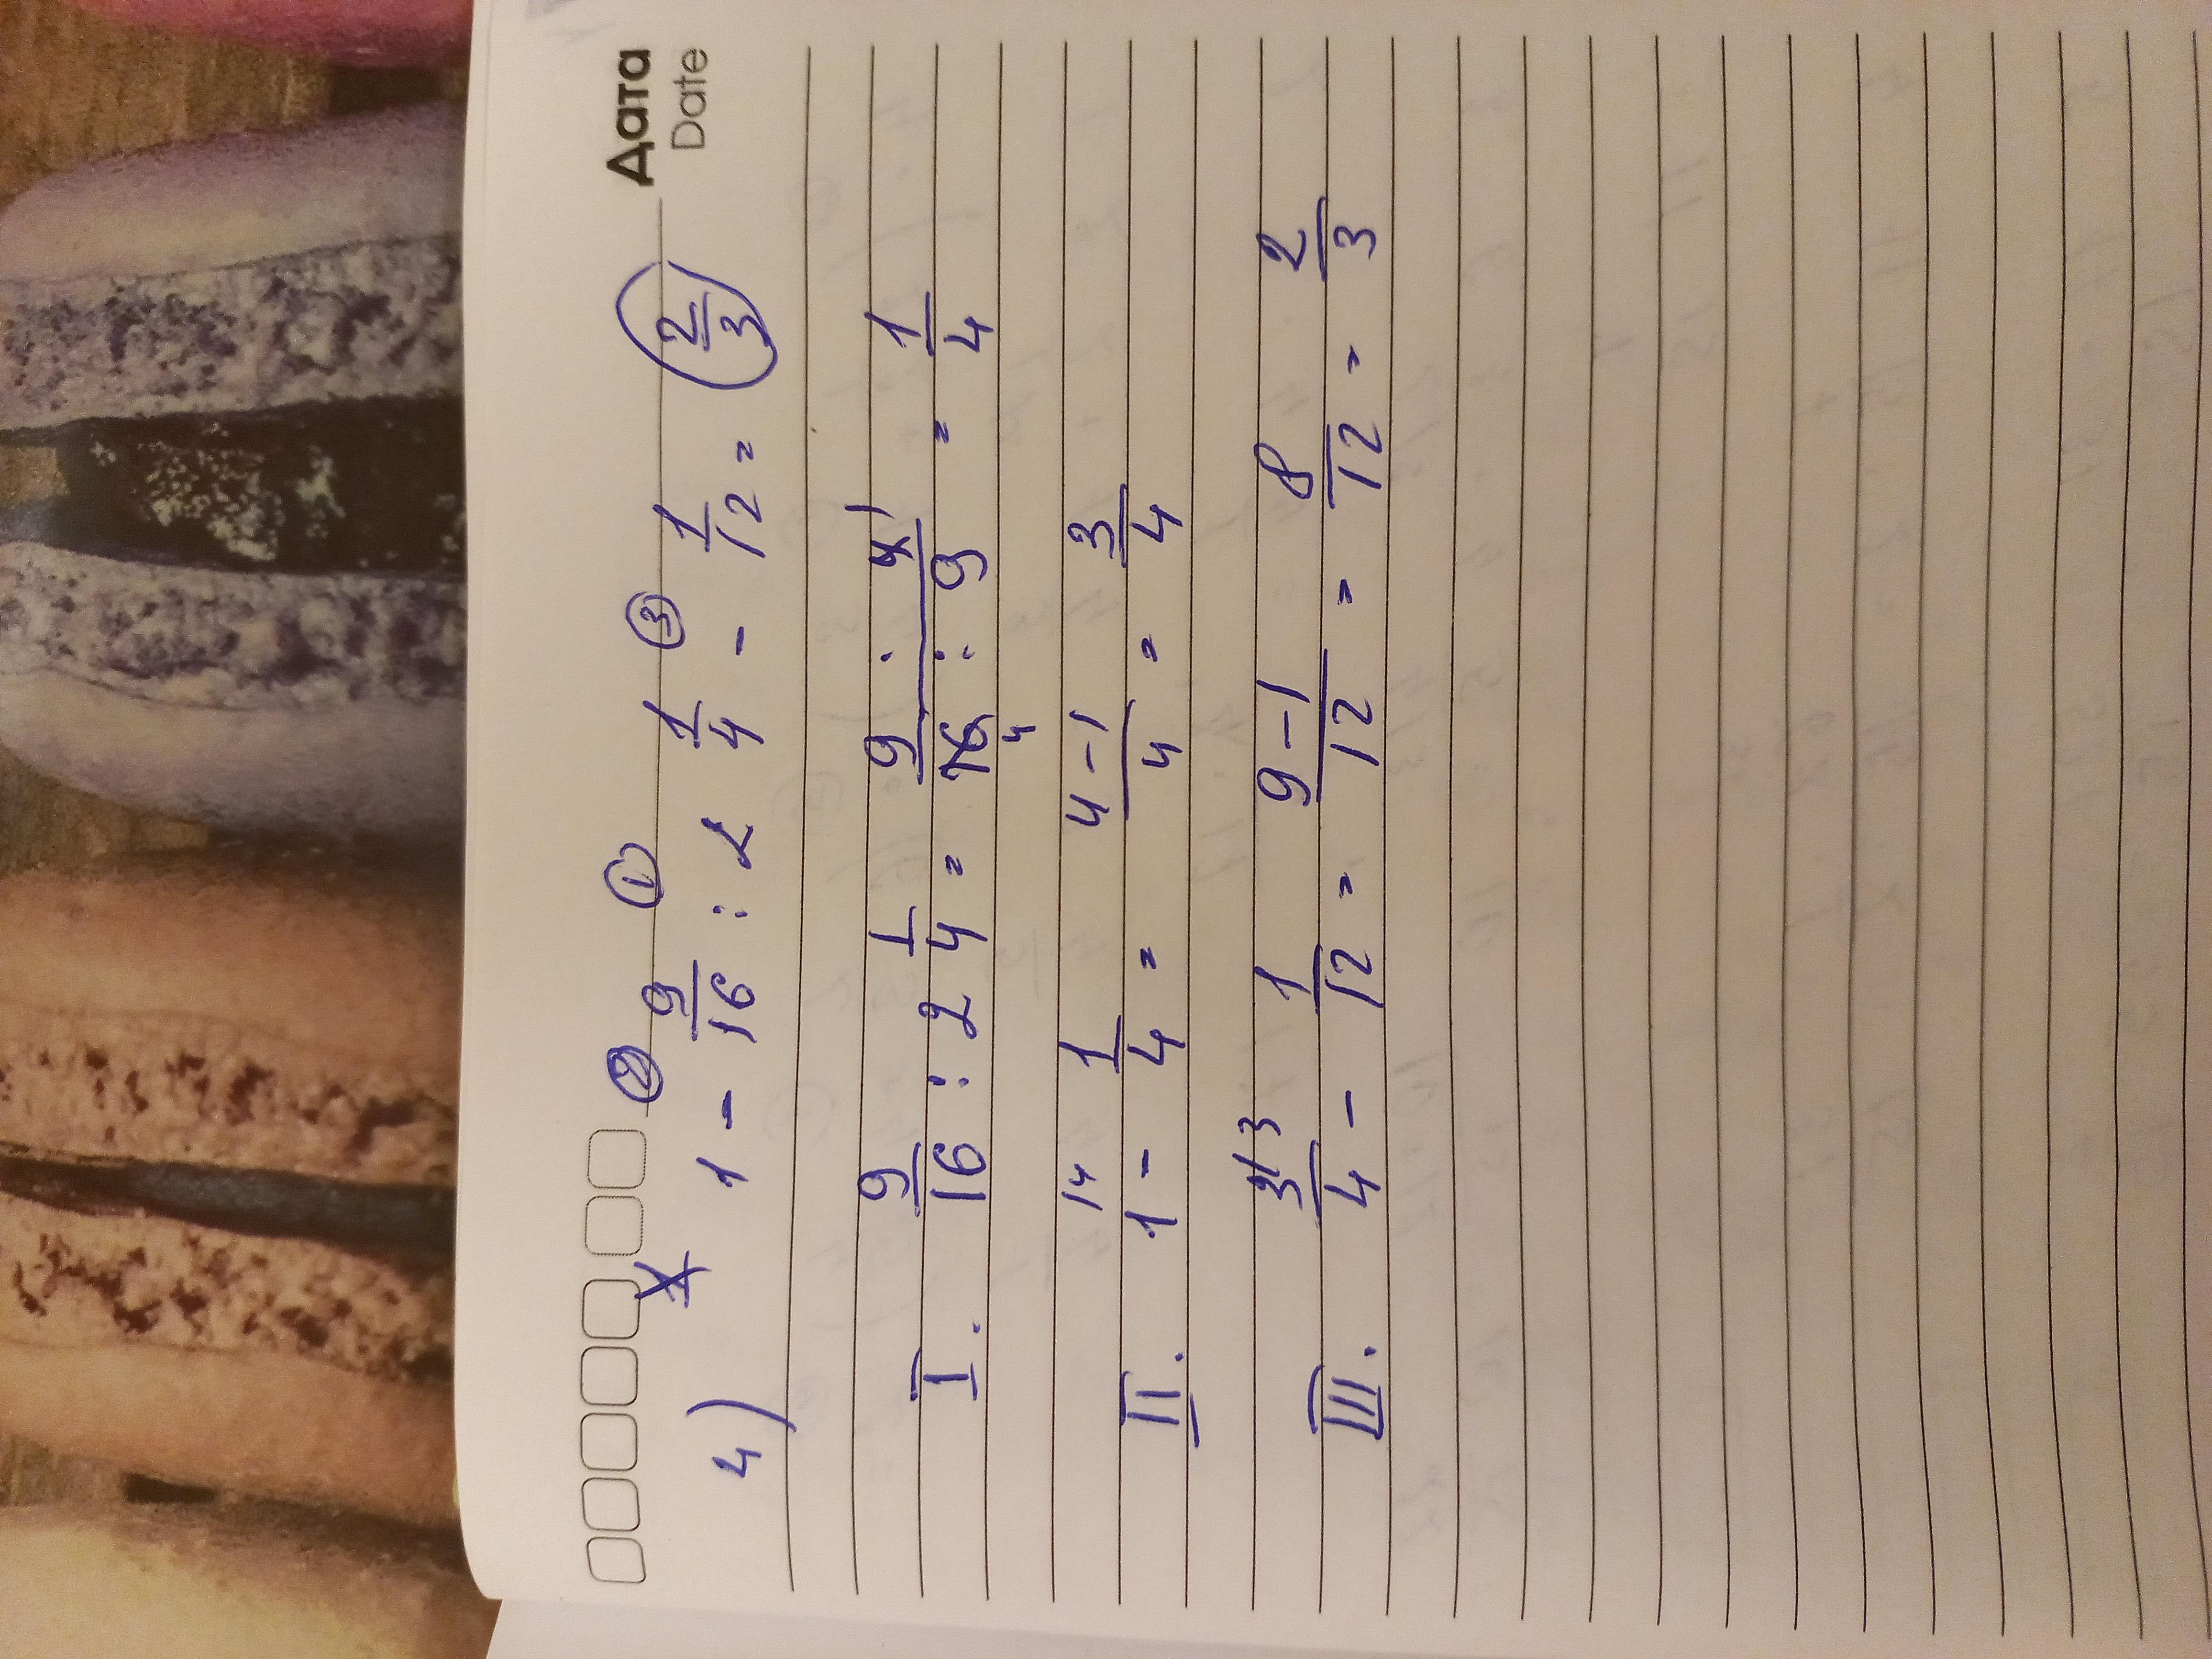 Дата
Date
4) 1 - 9/16 : 2 1/4 - 1/12 = 2/3
② ① ③
I. 9/16 : 2 1/4 = 9 · 4 1/16 4 : 9 = 1/4
II. 1 /4 - 1/4 = 4-1/4 = 3/4
III. 3 /3/4 - 1/12 = 9-1/12 = 8/12 = 2/3